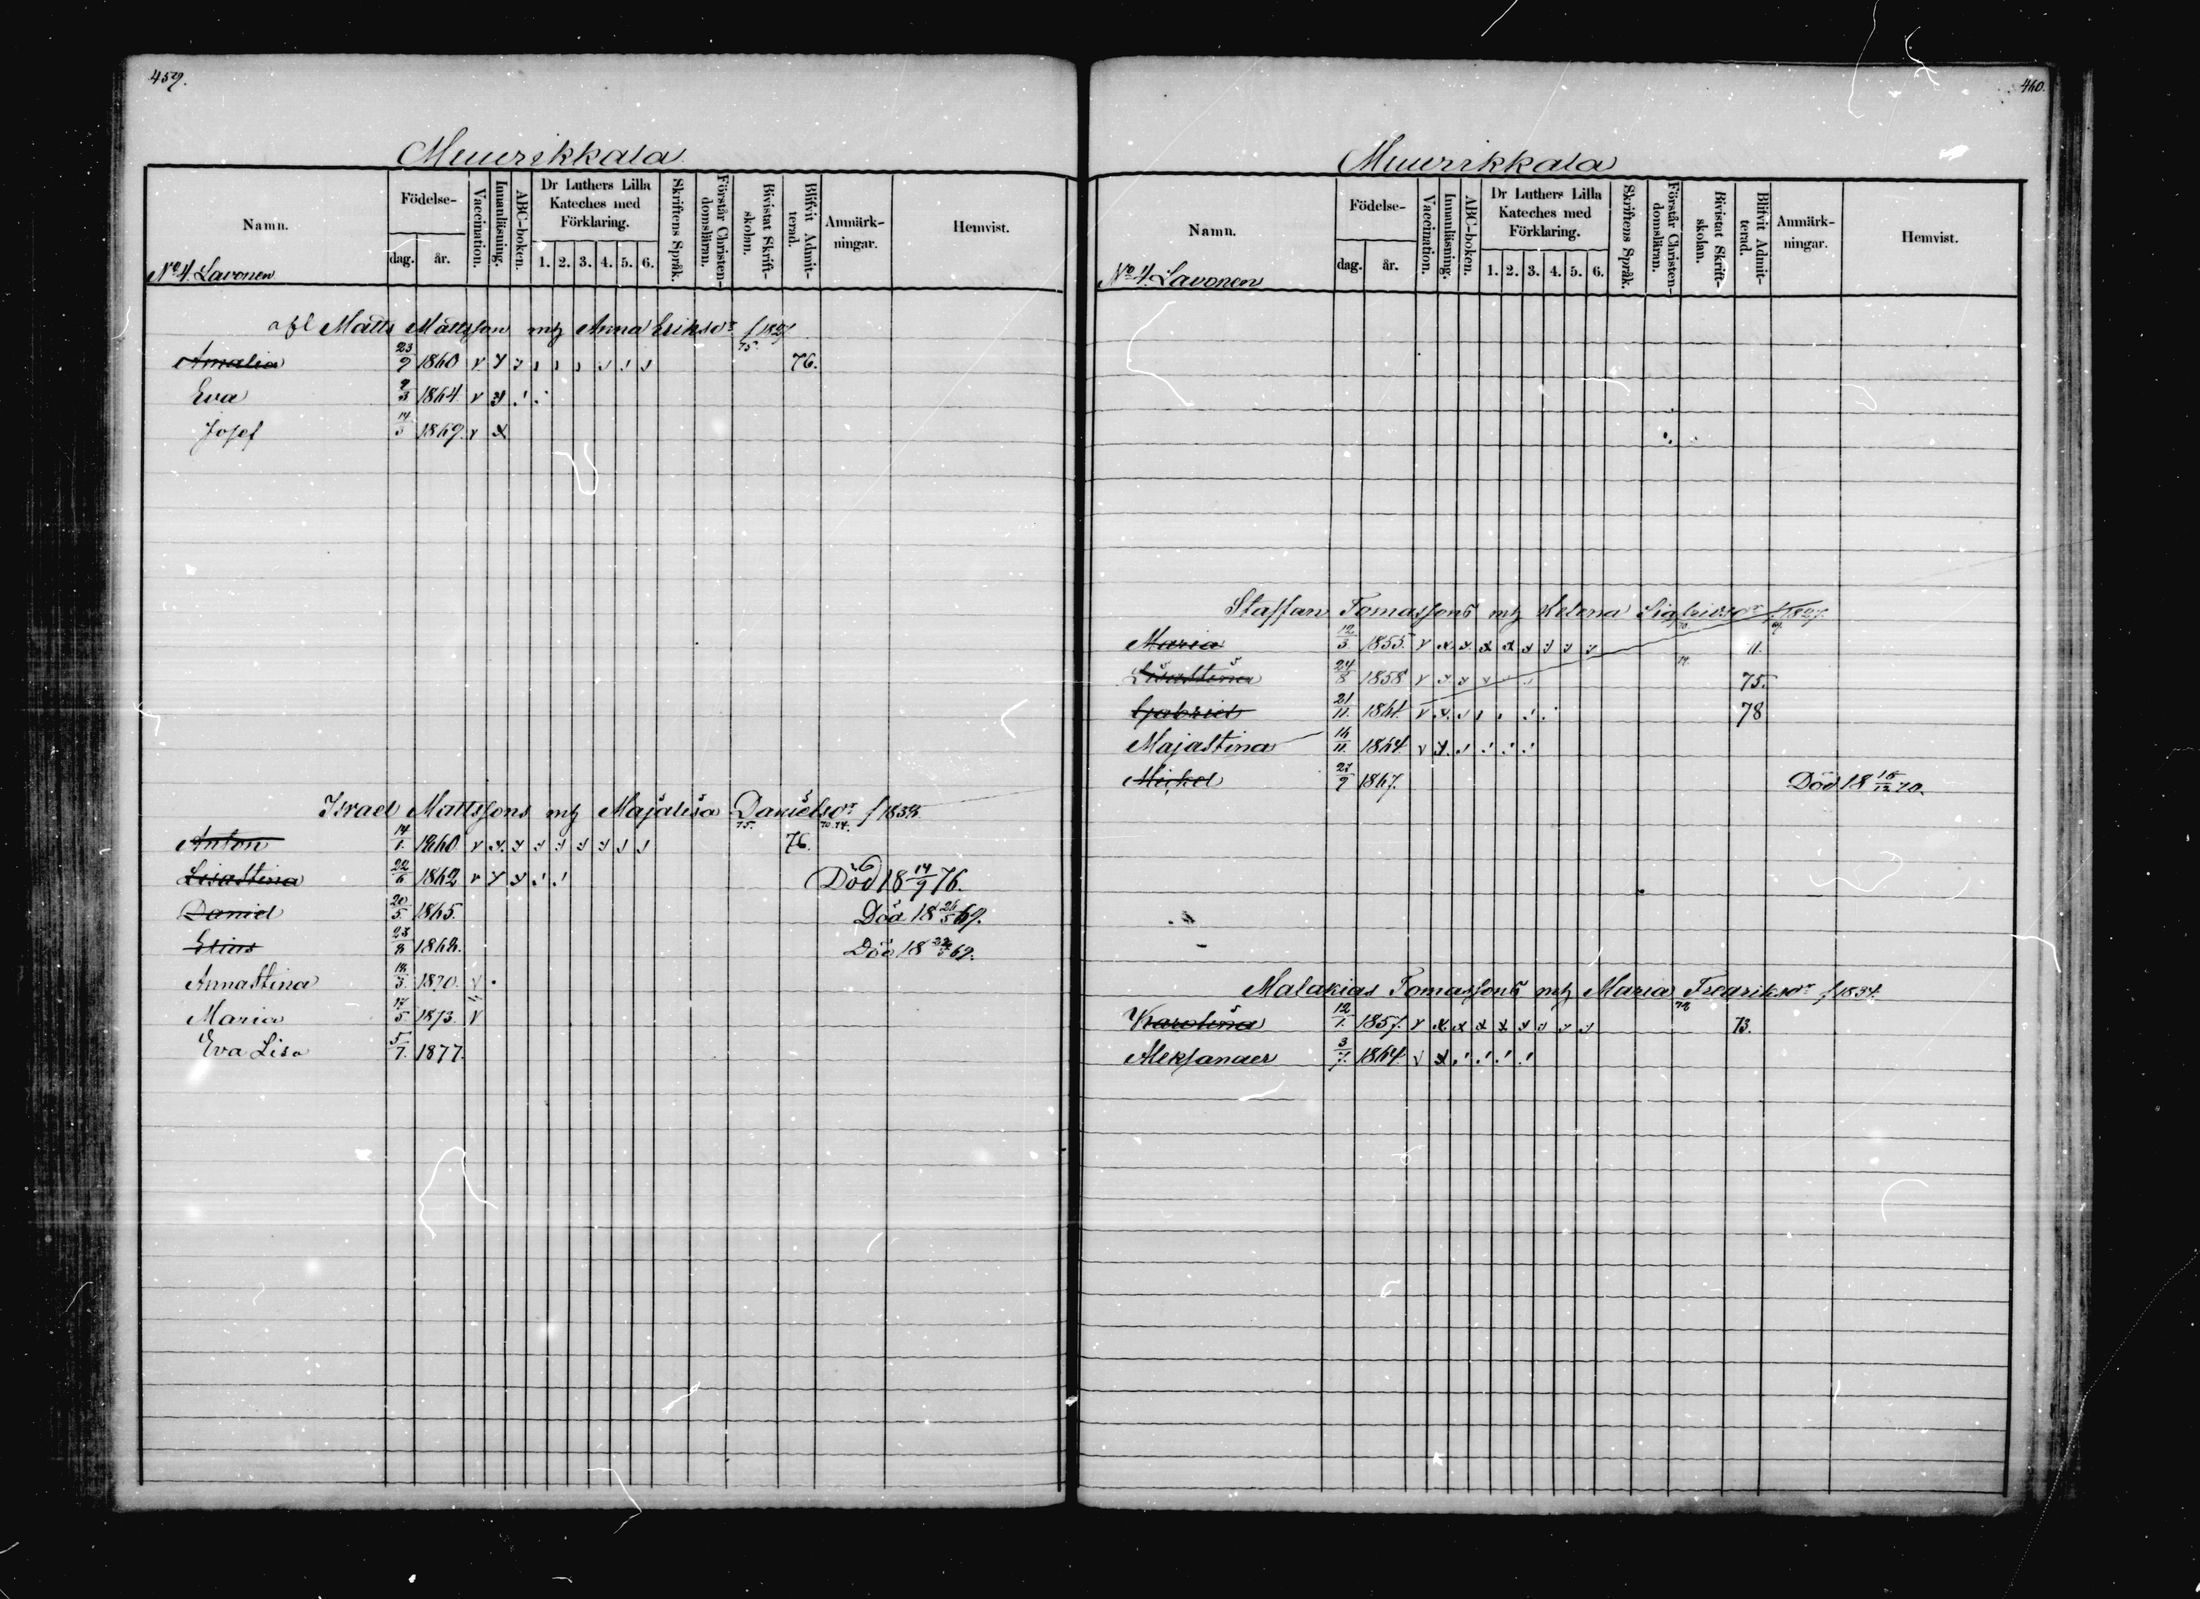 459.
Muurikkala
Namn.
Födelse-
dag.
år.
Vaccination.
Innanläsning.
ABC-boken.
Dr Luthers Lilla
Kateches med
Förklaring.
1. 2. 3. 4. 5. 6.
Skriftens Språk.
Förstår Christen-
domsläran.
Bivistat Skrift-
skolan.
Blifvit Admit-
terad.
Anmärk-
ningar.
Hemvist.
No 4. Lavonen
afl Matts Mattsson mh Anna Eriksdr f 1827
75.
Amalia 23/9 1860 v 76.
Eva 9/3 1864 v
Josef 14/3 1869. v x
Israel Mattssons mh Majalisa Danielsdr f 1838
75. 70. 74.
Anton 14/1. 1860 v 76.
Lisastina 22/6 1862 v Död 18 14/9 76.
Daniel 20/5 1865. Död 18 26/5 69.
Elias 23/8 1868. Död 18 69.
Annastina 18./3. 1870. v
Maria 17/5 1873. v
Eva Lisa 5/7. 1877.
460.
Muurikkala
Namn.
Födelse-
dag.
år.
Vaccination.
Innanläsning.
ABC-boken.
Dr Luthers Lilla
Kateches med
Förklaring.
1. 2. 3. 4. 5. 6.
Skriftens Språk.
Förstår Christen-
domsläran.
Bivistat Skrift-
skolan.
Blifvit Admit-
terad.
Anmärk-
ningar.
Hemvist.
No 4. Lavonen
Staffan Tomassons mh Helena Sigfridsdr f 1827.
Maria 12/3 1855. v x x x x 11.
74.
Lisastina 24/8 1858 v 75.
Gabriel 21/11. 1861. v 78
Majastina 16/11. 1864 v
Mickel 27/9 1867. Död 18 16/12 70.
Malakias Tomassons mh Maria Fredriksdr f 1834.
72
Karolina 12/1. 1857. v x x x x 73.
Aleksander 3/7. 1864 v x